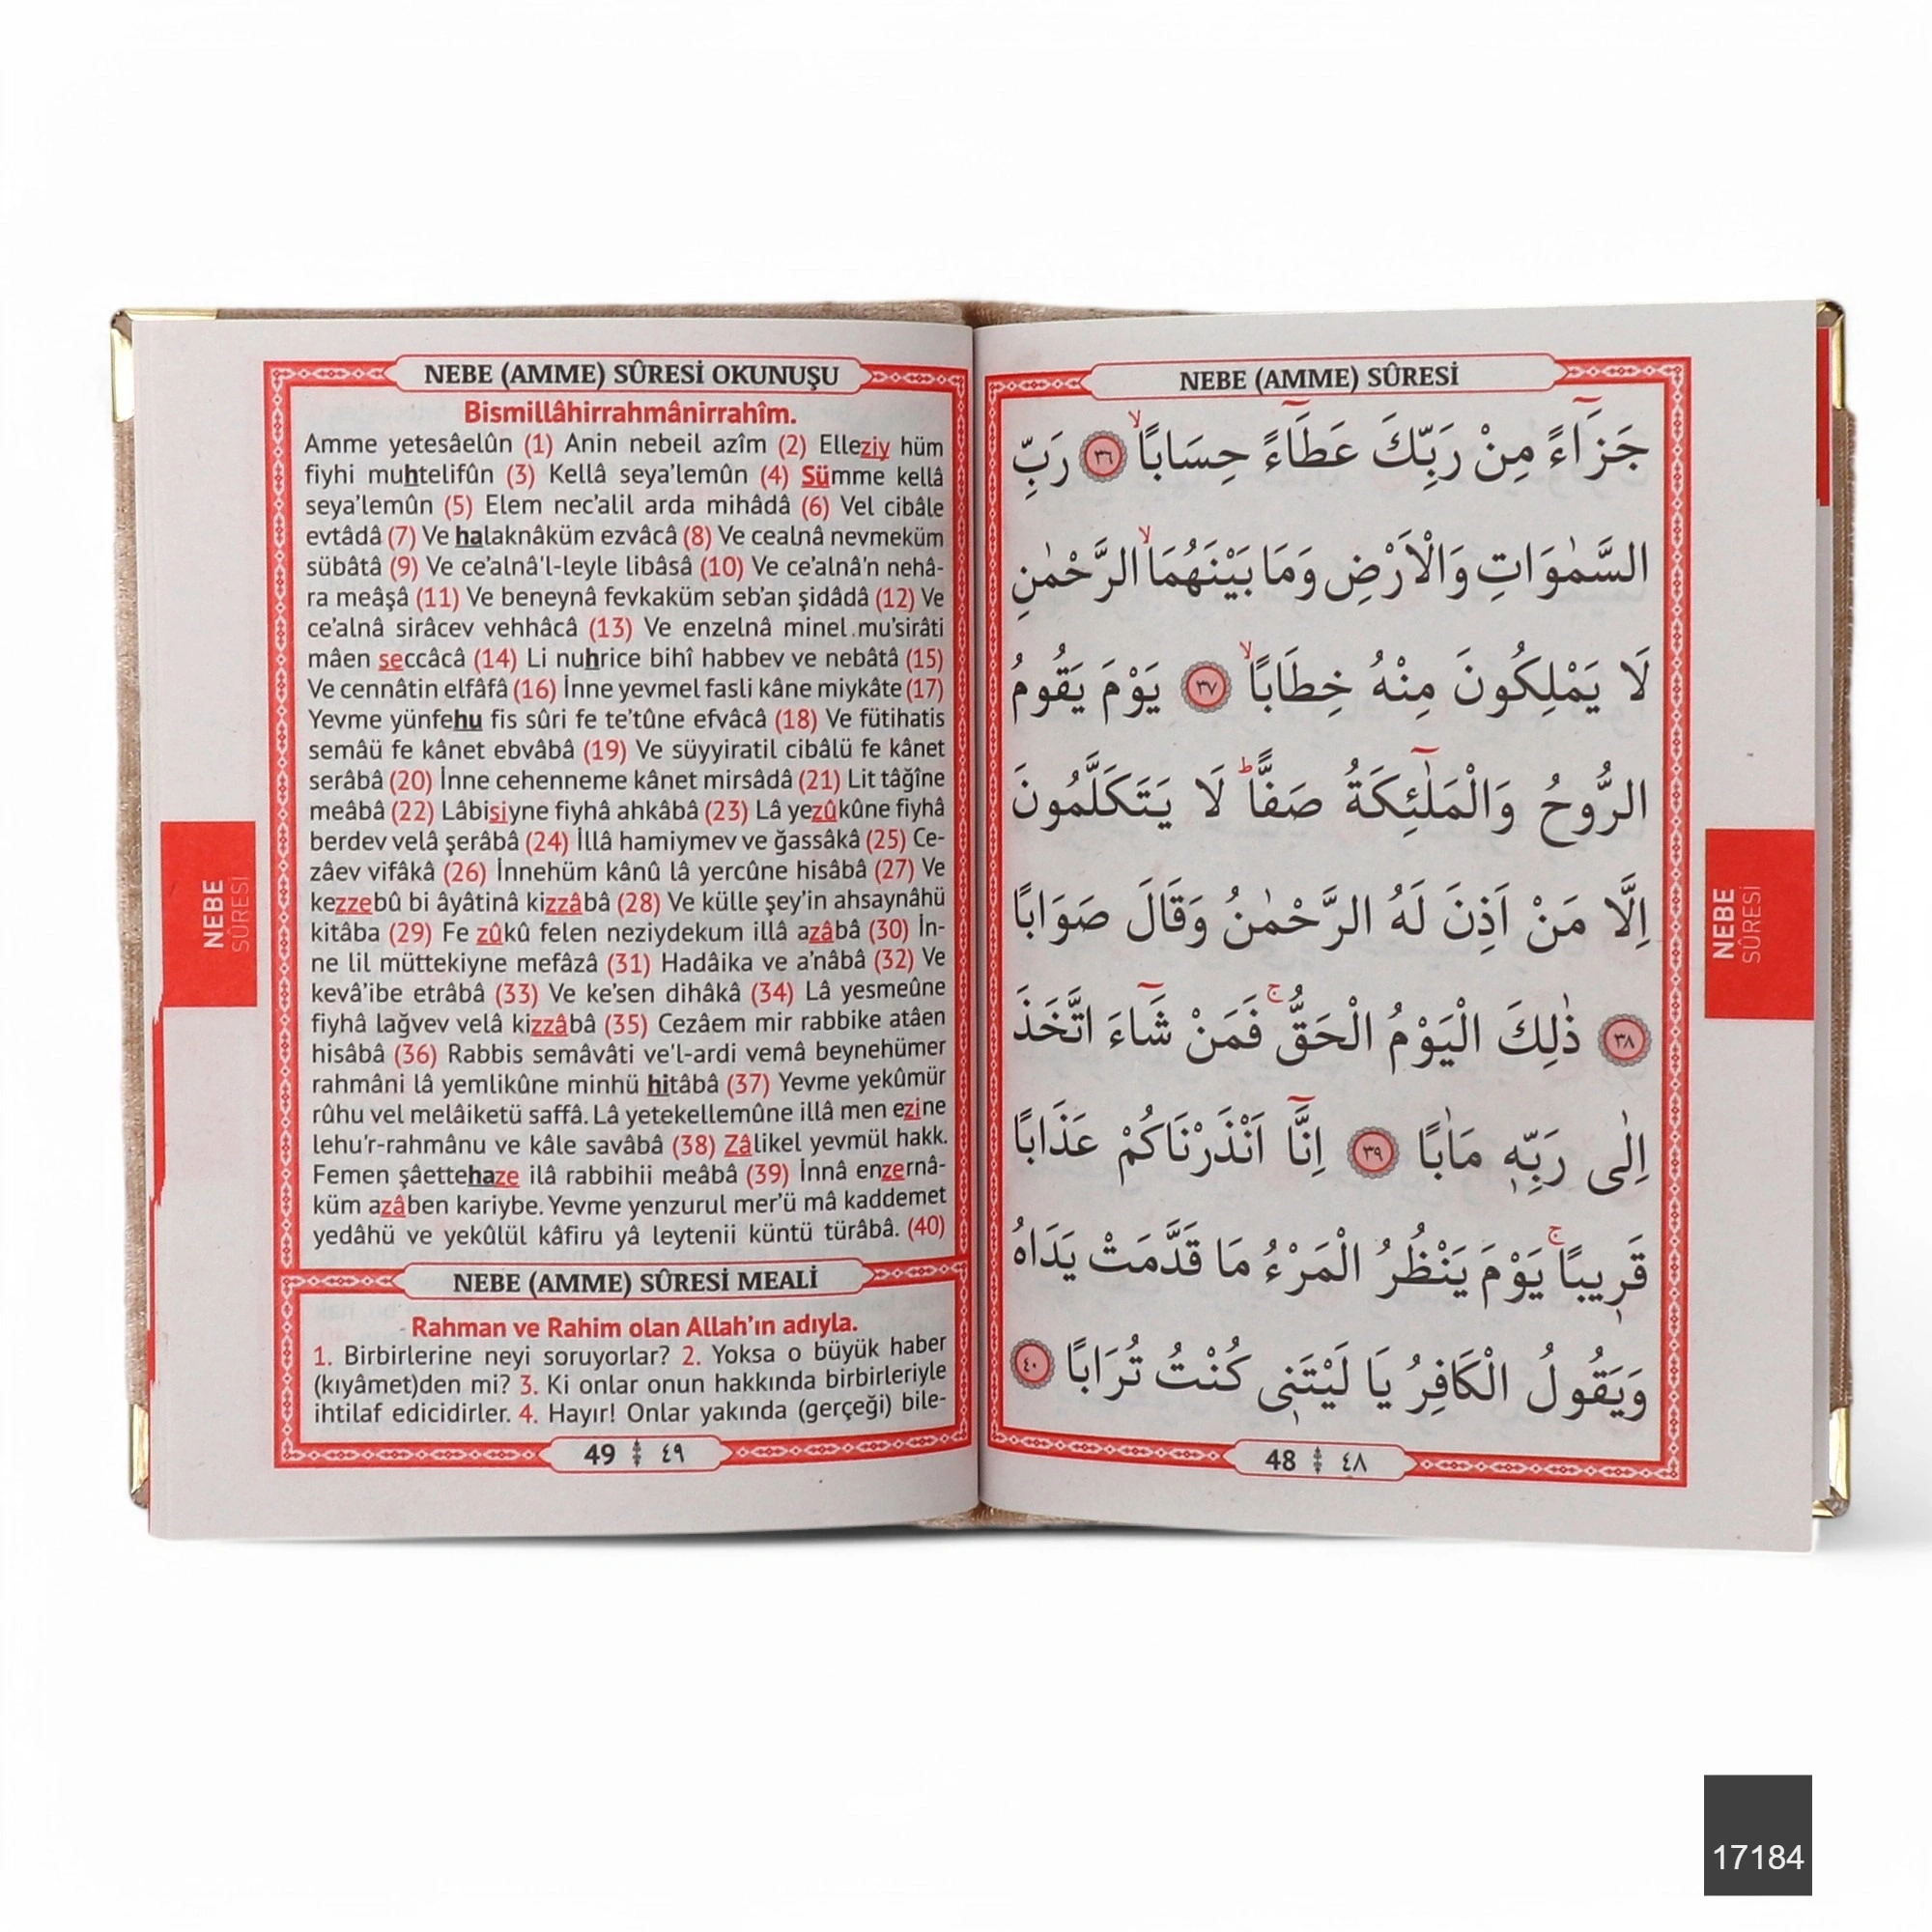 NEBE (AMME) SÛRESİ
جَزَٓاءً مِنْ رَبِّكَ عَطَٓاءً حِسَابًاۙ ﴿٣٦﴾ رَبِّ
السَّمٰوَاتِ وَالْاَرْضِ وَمَا بَيْنَهُمَاۙ الرَّحْمٰنِ
لَا يَمْلِكُونَ مِنْهُ خِطَابًاۙ ﴿٣٧﴾ يَوْمَ يَقُومُ
الرُّوحُ وَالْمَلٰٓئِكَةُ صَفًّاۜ لَا يَتَكَلَّمُونَ
اِلَّا مَنْ اَذِنَ لَهُ الرَّحْمٰنُ وَقَالَ صَوَابًا
﴿٣٨﴾ ذٰلِكَ الْيَوْمُ الْحَقُّۚ فَمَنْ شَٓاءَ اتَّخَذَ
اِلٰى رَبِّه۪ مَاٰبًا ﴿٣٩﴾ اِنَّٓا اَنْذَرْنَاكُمْ عَذَابًا
قَر۪يبًاۚ يَوْمَ يَنْظُرُ الْمَرْءُ مَا قَدَّمَتْ يَدَاهُ
وَيَقُولُ الْكَافِرُ يَا لَيْتَن۪ى كُنْتُ تُرَابًا ﴿٤٠﴾
48 ٤٨
NEBE
SÛRESİ
NEBE (AMME) SÛRESİ OKUNUŞU
Bismillâhirrahmânirrahîm.
Amme yetesâelûn (1) Anin nebeil azîm (2) Elleziy hüm
fiyhi muhtelifûn (3) Kellâ seya'lemûn (4) Sümme kellâ
seya'lemûn (5) Elem nec'alil arda mihâdâ (6) Vel cibâle
evtâdâ (7) Ve halaknâküm ezvâcâ (8) Ve cealnâ nevmeküm
sübâtâ (9) Ve ce'alnâ'l-leyle libâsâ (10) Ve ce'alnâ'n nehâ-
ra meâşâ (11) Ve beneynâ fevkaküm seb'an şidâdâ (12) Ve
ce'alnâ sirâcev vehhâcâ (13) Ve enzelnâ minel mu'sirâti
mâen seccâcâ (14) Li nuhrice bihî habbev ve nebâtâ (15)
Ve cennâtin elfâfâ (16) İnne yevmel fasli kâne miykâte (17)
Yevme yünfehu fis sûri fe te'tûne efvâcâ (18) Ve fütihatis
semâü fe kânet ebvâbâ (19) Ve süyyiratil cibâlü fe kânet
serâbâ (20) İnne cehenneme kânet mirsâdâ (21) Lit tâğîne
meâbâ (22) Lâbisiyne fiyhâ ahkâbâ (23) Lâ yezûkûne fiyhâ
berdev velâ şerâbâ (24) İllâ hamiymev ve ğassâkâ (25) Ce-
zâev vifâkâ (26) İnnehüm kânû lâ yercûne hisâbâ (27) Ve
kezzebû bi âyâtinâ kizzâbâ (28) Ve külle şey'in ahsaynâhü
kitâba (29) Fe zûkû felen neziydekum illâ azâbâ (30) İn-
ne lil müttekiyne mefâzâ (31) Hadâika ve a'nâbâ (32) Ve
kevâ'ibe etrâbâ (33) Ve ke'sen dihâkâ (34) Lâ yesmeûne
fiyhâ lağvev velâ kizzâbâ (35) Cezâem mir rabbike atâen
hisâbâ (36) Rabbis semâvâti ve'l-ardi vemâ beynehümer
rahmâni lâ yemlikûne minhü hitâbâ (37) Yevme yekûmür
rûhu vel melâiketü saffâ. Lâ yetekellemûne illâ men ezine
lehu'r-rahmânu ve kâle savâbâ (38) Zâlikel yevmül hakk.
Femen şâettehaze ilâ rabbihii meâbâ (39) İnnâ enzernâ-
küm azâben kariybe. Yevme yenzurul mer'ü mâ kaddemet
yedâhü ve yekûlül kâfiru yâ leytenii küntü türâbâ. (40)
NEBE (AMME) SÛRESİ MEALİ
Rahman ve Rahim olan Allah'ın adıyla.
1. Birbirlerine neyi soruyorlar? 2. Yoksa o büyük haber
(kıyâmet)den mi? 3. Ki onlar onun hakkında birbirleriyle
ihtilaf edicidirler. 4. Hayır! Onlar yakında (gerçeği) bile-
49 ٤٩
NEBE
SÛRESİ
17184